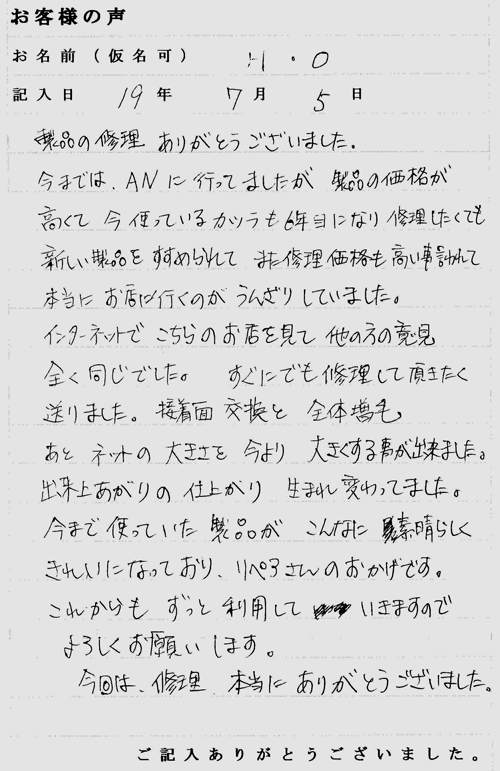 お客様の声
お名前（仮名可） H・O
記入日 19年 7月 5日
製品の修理 ありがとうございました。
今までは、ANに行ってましたが 製品の価格が
高くて 今使っているカツラも6年目になり 修理したくても
新しい製品をすすめられて また修理価格も高い事言われて
本当にお店に行くのがうんざりしていました。
インターネットで こちらのお店を見て 他の方の意見
全く同じでした。 すぐにでも修理して頂きたく
送りました。接着面 交換と 全体増毛
あと ネットの大きさを 今より 大きくする事が出来ました。
出来上あがりの仕上がり 生まれ変わってました。
今まで使っていた 製品が こんなに 素晴らしく
きれいになっており、リペアさんのおかげです。
これからも ずっと利用して いきますので
よろしくお願いします。
今回は、修理 本当にありがとうございました。
ご記入ありがとうございました。